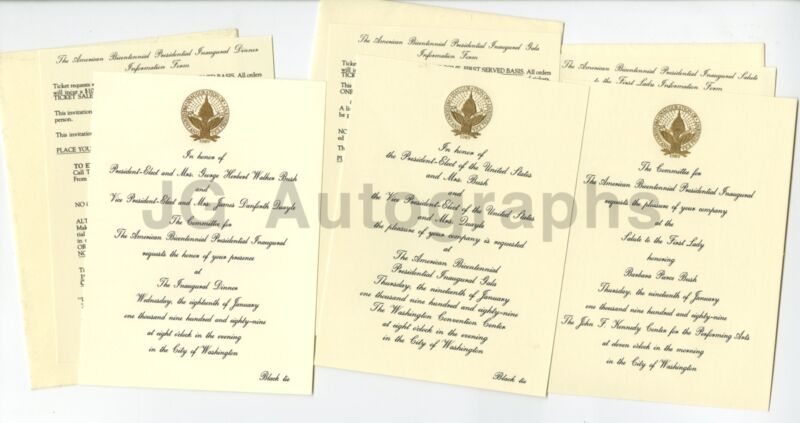 The American Bicentennial Presidential Inaugural Dinner
Information Form
Ticket requests
will incur a $10
TICKET SALE
This invitation
person.
This invitatio
PLACE YOU
TO E
Call T
From
NO
ALT
Mak
tial
in
OR
NO
In honor of
President-Elect and Mrs. George Herbert Walker Bush
and
Vice President-Elect and Mrs. James Danforth Quayle
The Committee for
The American Bicentennial Presidential Inaugural
requests the honor of your presence
at
The Inaugural Dinner
Wednesday, the eighteenth of January
one thousand nine hundred and eighty-nine
at eight o'clock in the evening
in the City of Washington
Black tie
The American Bicentennial Presidential Inaugural Gala
Information Form
FIRST SERVED BASIS. All orders
TICK
ONE
A li
be
NO
ed
In honor of
the President-Elect of the United States
and Mrs. Bush
and
the Vice President-Elect of the United States
and Mrs. Quayle
the pleasure of your company is requested
at
The American Bicentennial
Presidential Inaugural Gala
Thursday, the nineteenth of January
one thousand nine hundred and eighty-nine
The Washington Convention Center
at eight o'clock in the evening
in the City of Washington
Black tie
The American Bicentennial Presidential Inaugural Salute
to the First Lady Information Form
The Committee for
The American Bicentennial Presidential Inaugural
requests the pleasure of your company
at the
Salute to the First Lady
honoring
Barbara Pierce Bush
Thursday, the nineteenth of January
one thousand nine hundred and eighty-nine
The John F. Kennedy Center for the Performing Arts
at eleven o'clock in the morning
in the City of Washington
JG Autographs